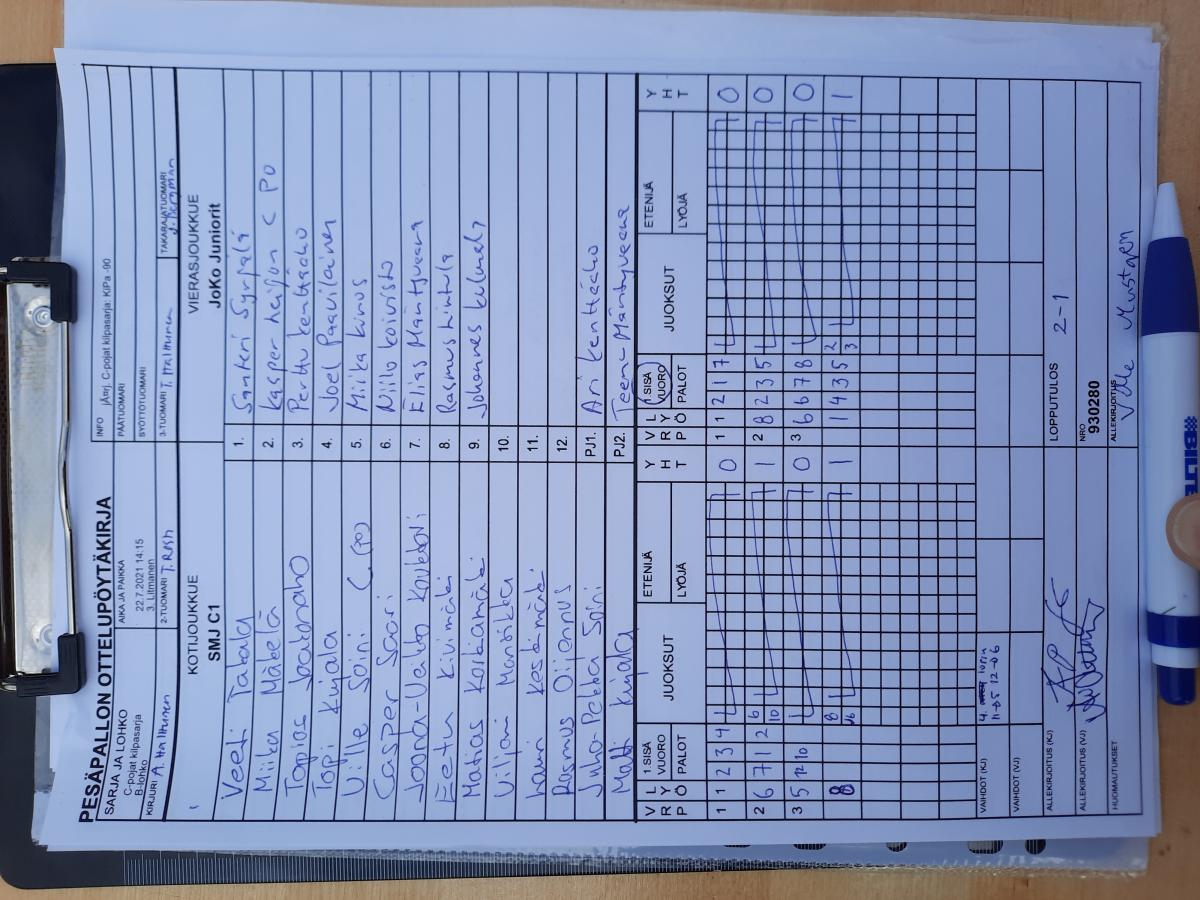 PESÄPALLON OTTELUPÖYTÄKIRJA
SARJA JA LOHKO
C-pojat kilpasarja
B-lohko
AIKA JA PAIKKA
22.7.2021 14:15
3. Litmanen
INFO jAerj. C-pojat kilpasarja: KiPa -90
PÄÄTUOMARI
SYÖTTÖTUOMARI
KIRJURI A Halttunen
2-TUOMARI
3-TUOMARI T. Halttunen
TAKARAJATUOMARI
KOTIJOUKKUE
SMJ C1
VIERASJOUKKUE
JoKo Juniorit
Veeti Takala 1. Santeri Syrjälä
Miika Mäkelä 2. Kasper C PO
Topias 3. Perttu Kenttäaho
Topi Kujala 4. Joel Paavilainen
Ville Soini C (PO) 5. Miika
Casper Saari 6. Niilo Koivisto
Joona-Veikko 7. Elias Mäntyvaara
Eetu Kivimäki 8. Rasmus Hintula
Matias Koskamäki 9. Johannes
Viljami 10.
Lauri Keskimäki 11.
Rasmus 12.
Juha-Pekka Soini PJ1. Ari Kenttäaho
Matti Kujala PJ2. Teemu Mäntyvaara
V R P L Y Ö 1.SISÄ VUORO PALOT JUOKSUT ETENIJÄ LYÖJÄ Y H T V R P L Y Ö 1.SISÄ VUORO PALOT JUOKSUT ETENIJÄ LYÖJÄ Y H T
1 1 2 3 4 0 1 1 2 1 7 0
2 6 7 1 2 6 10 1 2 8 2 3 5 0
3 5 12 10 0 3 6 6 7 8 0
8 8 1 1 4 3 5 2 3 1
VAIHDOT (KJ) 11-05 12-06
VAIHDOT (VJ)
ALLEKIRJOITUS (KJ)
LOPPUTULOS 2-1
ALLEKIRJOITUS (VJ)
NRO
930280
HUOMAUTUKSET
ALLEKIRJOITUS
BILTE